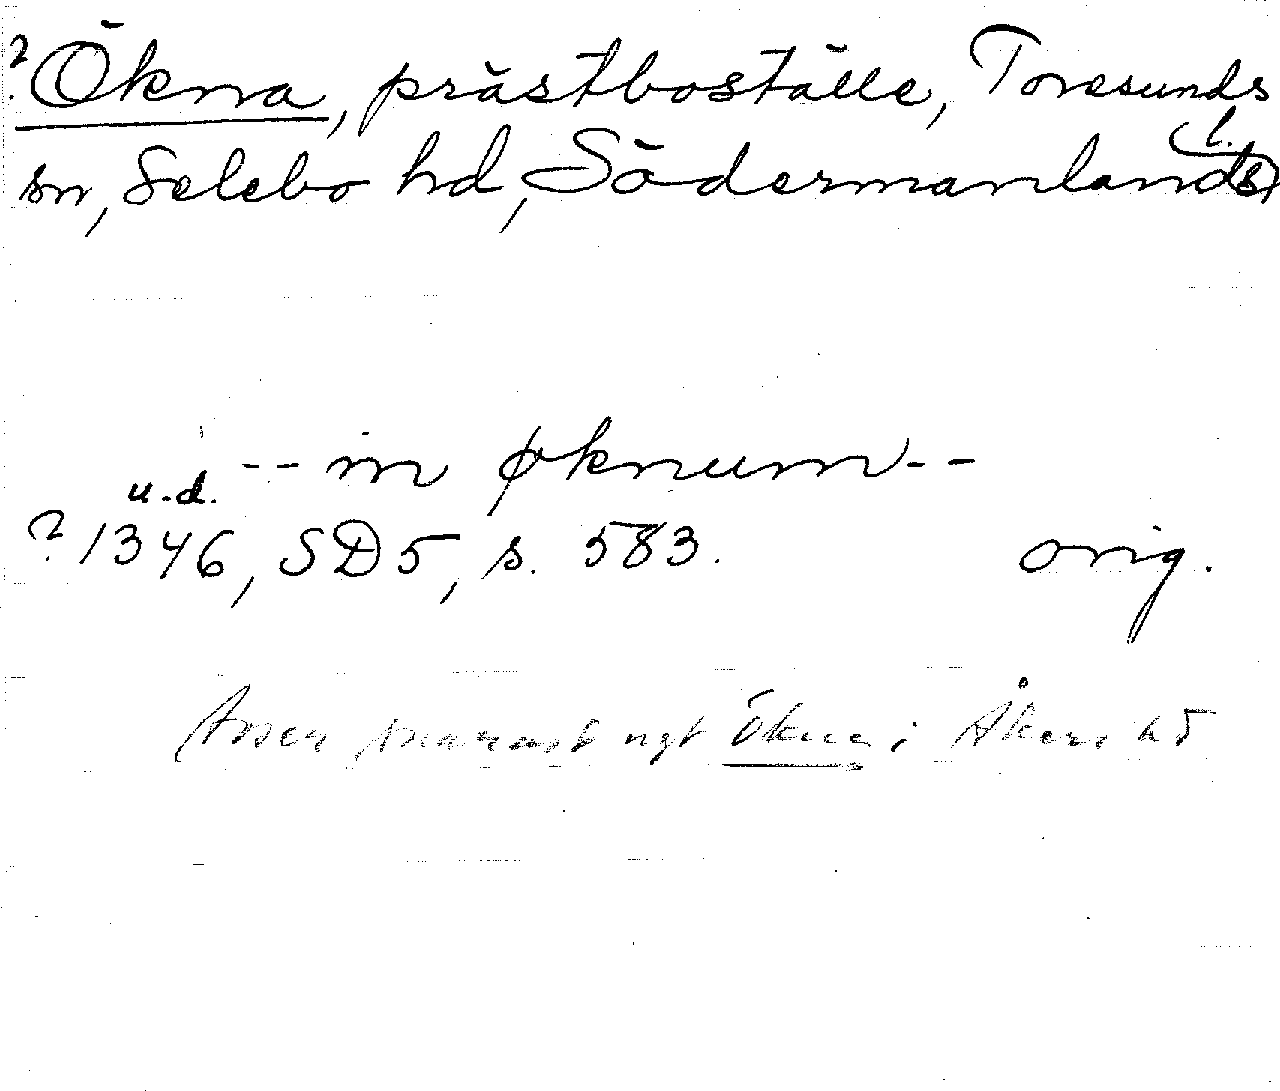 ? Ökna, prästboställe, Toresunds
sn, Selebo hd, Södermanlands l.
-- in øknum --
u.d.
? 1346, SD5, s. 583. orig.
Avser snarast ngt Ökna i Åkers hd